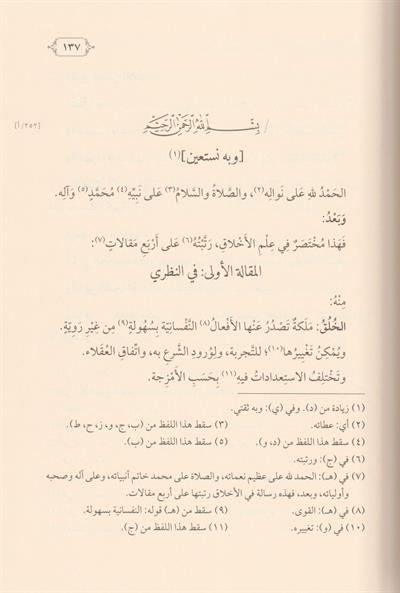 ١٣٧
/ بِسْمِ اللهِ الرَّحْمٰنِ الرَّحِيْمِ
[٢٥٢/أ]
[وبه نستعين](١)
الحَمْدُ للهِ عَلى نَوالِه(٢)، والصَّلاةُ والسَّلامُ(٣) عَلى نَبِيِّهِ(٤) مُحَمَّدٍ(٥) وَآلِه.
وَبَعْدُ:
فَهَذا مُخْتَصَرٌ فِي عِلْمِ الأَخْلاقِ، رَتَّبْتُهُ(٦) عَلى أَرْبَعِ مَقالاتٍ(٧):
المقالة الأولى: في النظري
مِنْهُ:
الخُلُقُ: مَلَكَةٌ تَصْدُرُ عَنْها الأَفْعالُ(٨) النَّفْسانِيَّةِ بِسُهُولةٍ(٩) مِن غَيرِ رَوِيّةٍ.
ويُمْكِنُ تَغْيِيرُها(١٠)؛ للتَّجرِبة، ولِوُرودِ الشَّرعِ به، واتِّفاقِ العُقَلاء.
وتَخْتلِفُ الاستِعداداتُ فيهِ(١١) بِحَسَبِ الأَمْزِجة.
(١) زيادة من (د). وفي (ي): وبه ثقتي.
(٢) أي: عطائه. (٣) سقط هذا اللفظ من (ب، ج، و، ز، ح، ط).
(٤) سقط هذا اللفظ من (د، و). (٥) سقط هذا اللفظ من (ب).
(٦) في (ج): ورتبته.
(٧) في (هـ): الحمد لله على عظيم نعمائه، والصلاة على محمد خاتم أنبيائه، وعلى آله وصحبه
وأوليائه، وبعد، فهذه رسالة في الأخلاق رتبتها على أربع مقالات.
(٨) في (هـ): القوى. (٩) سقط من (هـ) قوله: النفسانية بسهولة.
(١٠) في (و): تغييره. (١١) سقط هذا اللفظ من (ج).